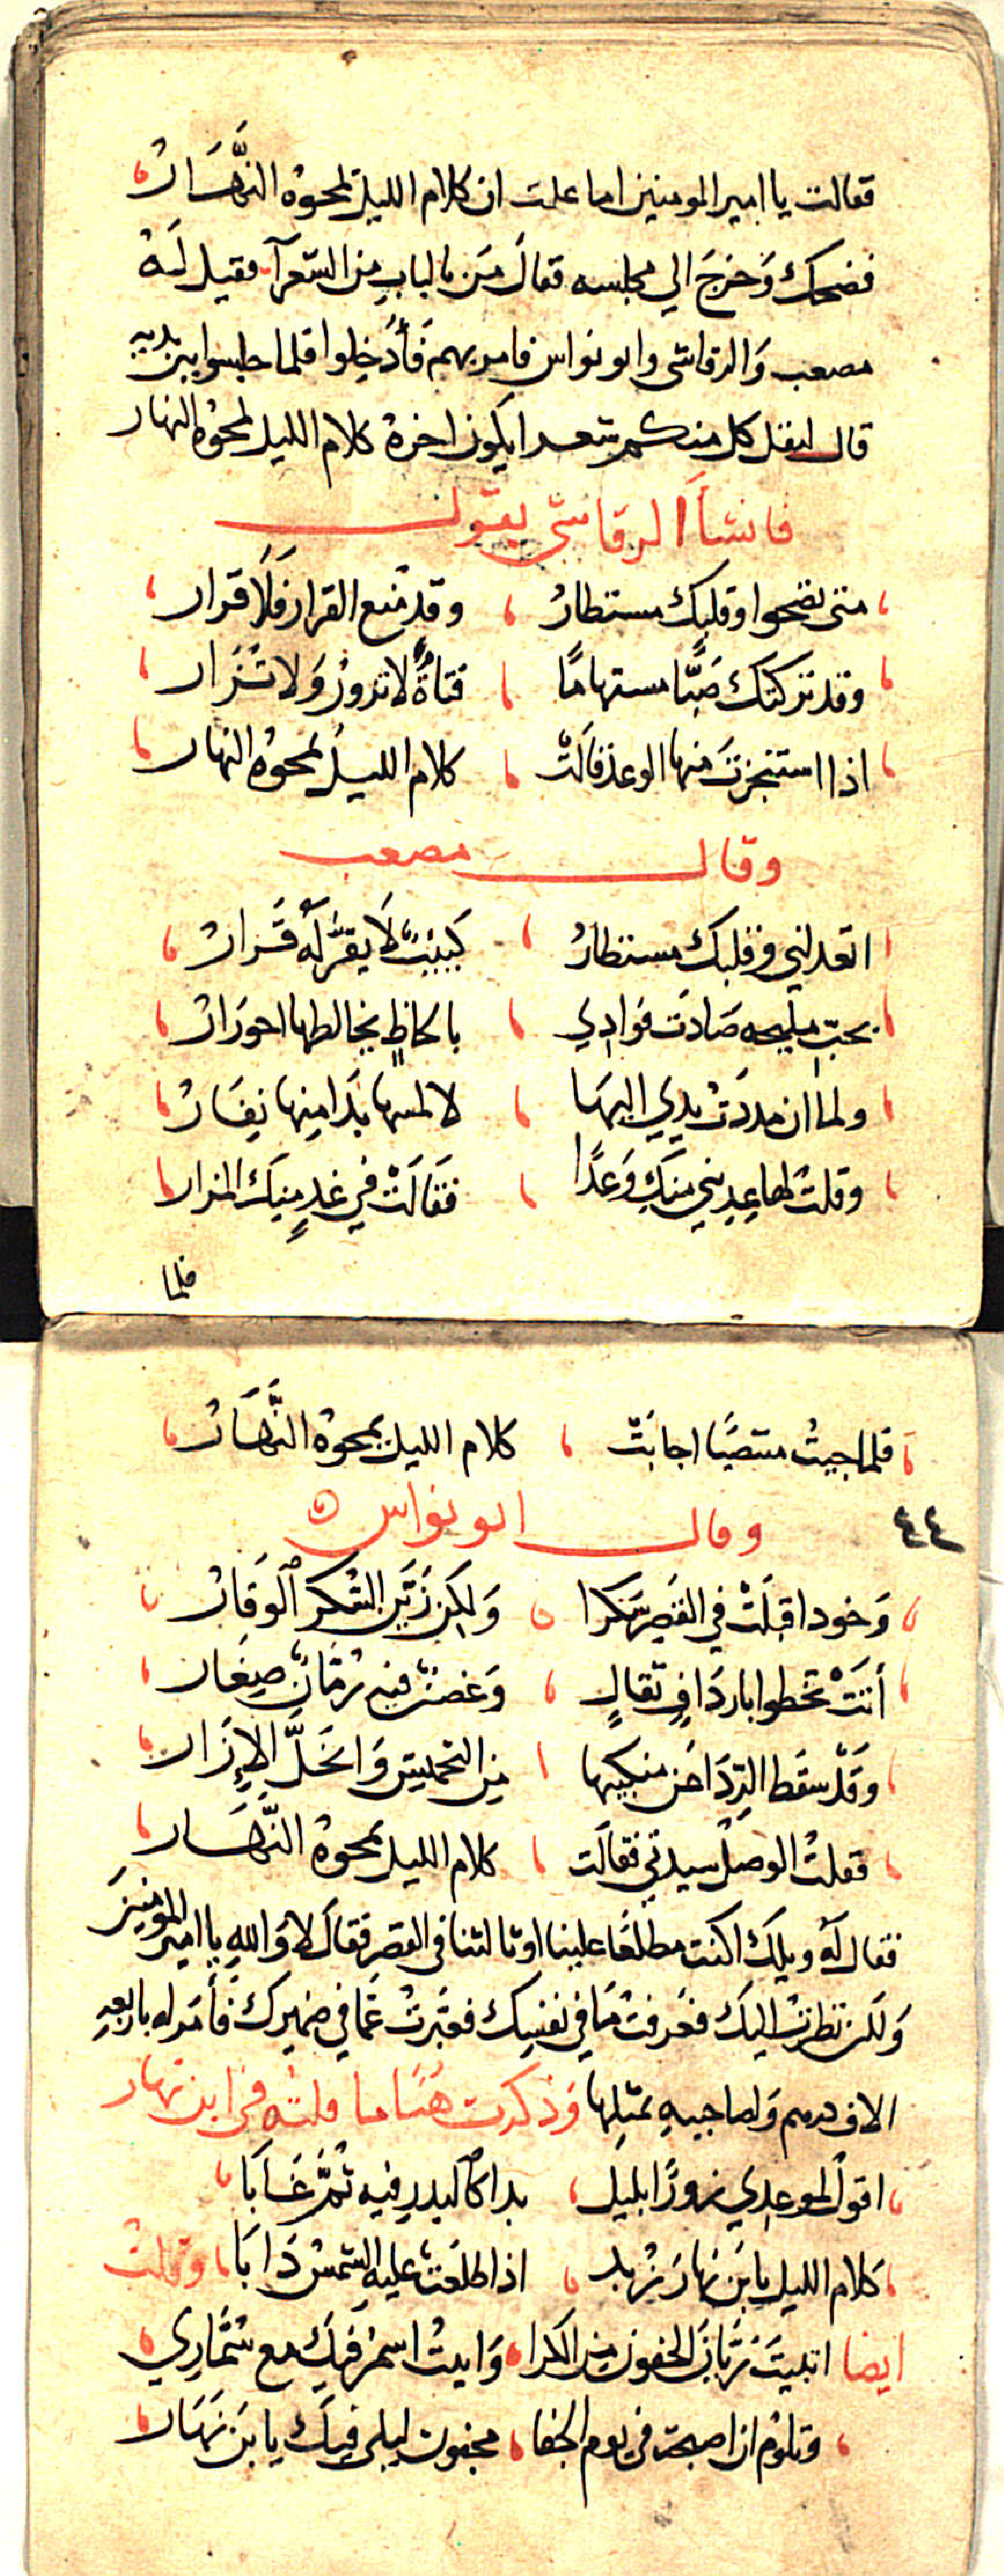 فقالت يا امير المومنين اما علمت ان كلام الليل يمحوه النَّهَارُ
فضحك وَخرَجَ الي مجلسه فقالَ مَن بالبابِ من الشّعرآ فقيل لَهُ
مصعب وَالرقاشى وابو نواس فامر بهم فَأُدْخِلوا فلما جلسوا بين يديه
قال ليقل كل منكم شعرا يكون اخرهُ كلام الليل يمحوه النهار
فانشأَ الرقاشى يقول
متى تضحوا وقلبك مستطارُ وقد مُنع القرار فَلَا قرار
وقد تركتك صَبًّا مستهامًا فتاةٌ لا تزورُ وَلا تُزار
اذا استنجزتَ منها الوعد قالَتْ كلام الليلُ يمحوه النهار
وقال مصعب
اتعدلني وقلبك مستطارُ كييبٌ لَا يقرُّ لَهُ قَرارُ
بحبّ مليحه صَادَت فوادِي بالحاظٍ يخالطها احوَرارُ
ولما ان مددَتُ يدِي اليهَا لالمسها بَدَا مِنها نِفَارُ
وقلت لها عِدِيني منكِ وَعدًا فقَالَتْ في غدٍ مِنكَ المزار
فلما
فلما جيتُ مقتضيًا اجابَتْ كلام الليل يمحوهُ النَّهَارُ
٤٤
وقال ابو نواس
وَخود اقبَلَتْ في القصر سَكرا وَلكِن زَيَّن السُّكر الوَقارُ
أتَتْ تخطوا باردَافٍ ثقالٍ وَغصنٌ فيهِ رُمَّانٌ صِغَار
وَقَدْ سقط الرِّدَا عَن منكبيها مِن التخميش وَانحَلَّ الإِزَار
فقلتُ الوصلُ سيدتي فقالَت كلام الليل يمحوهُ النَّهَار
فقال لَهُ ويلك اكنت مطلعًا علينا او ثالثنا في القصر فقالَ لا وَاللهِ يا امير المومنين
وَلكن نظرتُ اليكَ فعَرفتُ مَا في نفسِكَ فعَبّرتُ عَمَّا في ضميرك فَأمَر له باربعهِ
الاف درهم وَلصاحبيهِ بمثلِها وَذكرت هُنَا ما قلتُه في ابن نهار
اقول لموعِدِي زورًا بليلٍ بدا كالبدرِ فيهِ ثُمَّ غَابَا
كلام الليل يا بن نهار زُبد اذا طلعَت عليهِ الشمسُ ذَابَا وقلت
ايضا اتبيتَ رَيَّانَ الجفون من الكرا وَابيتُ اسهرُ فيكَ مع سُمَّارِي
وتلوم ان اصبحت في يوم الجفا مجنون ليلى فيك يا بن نهَار